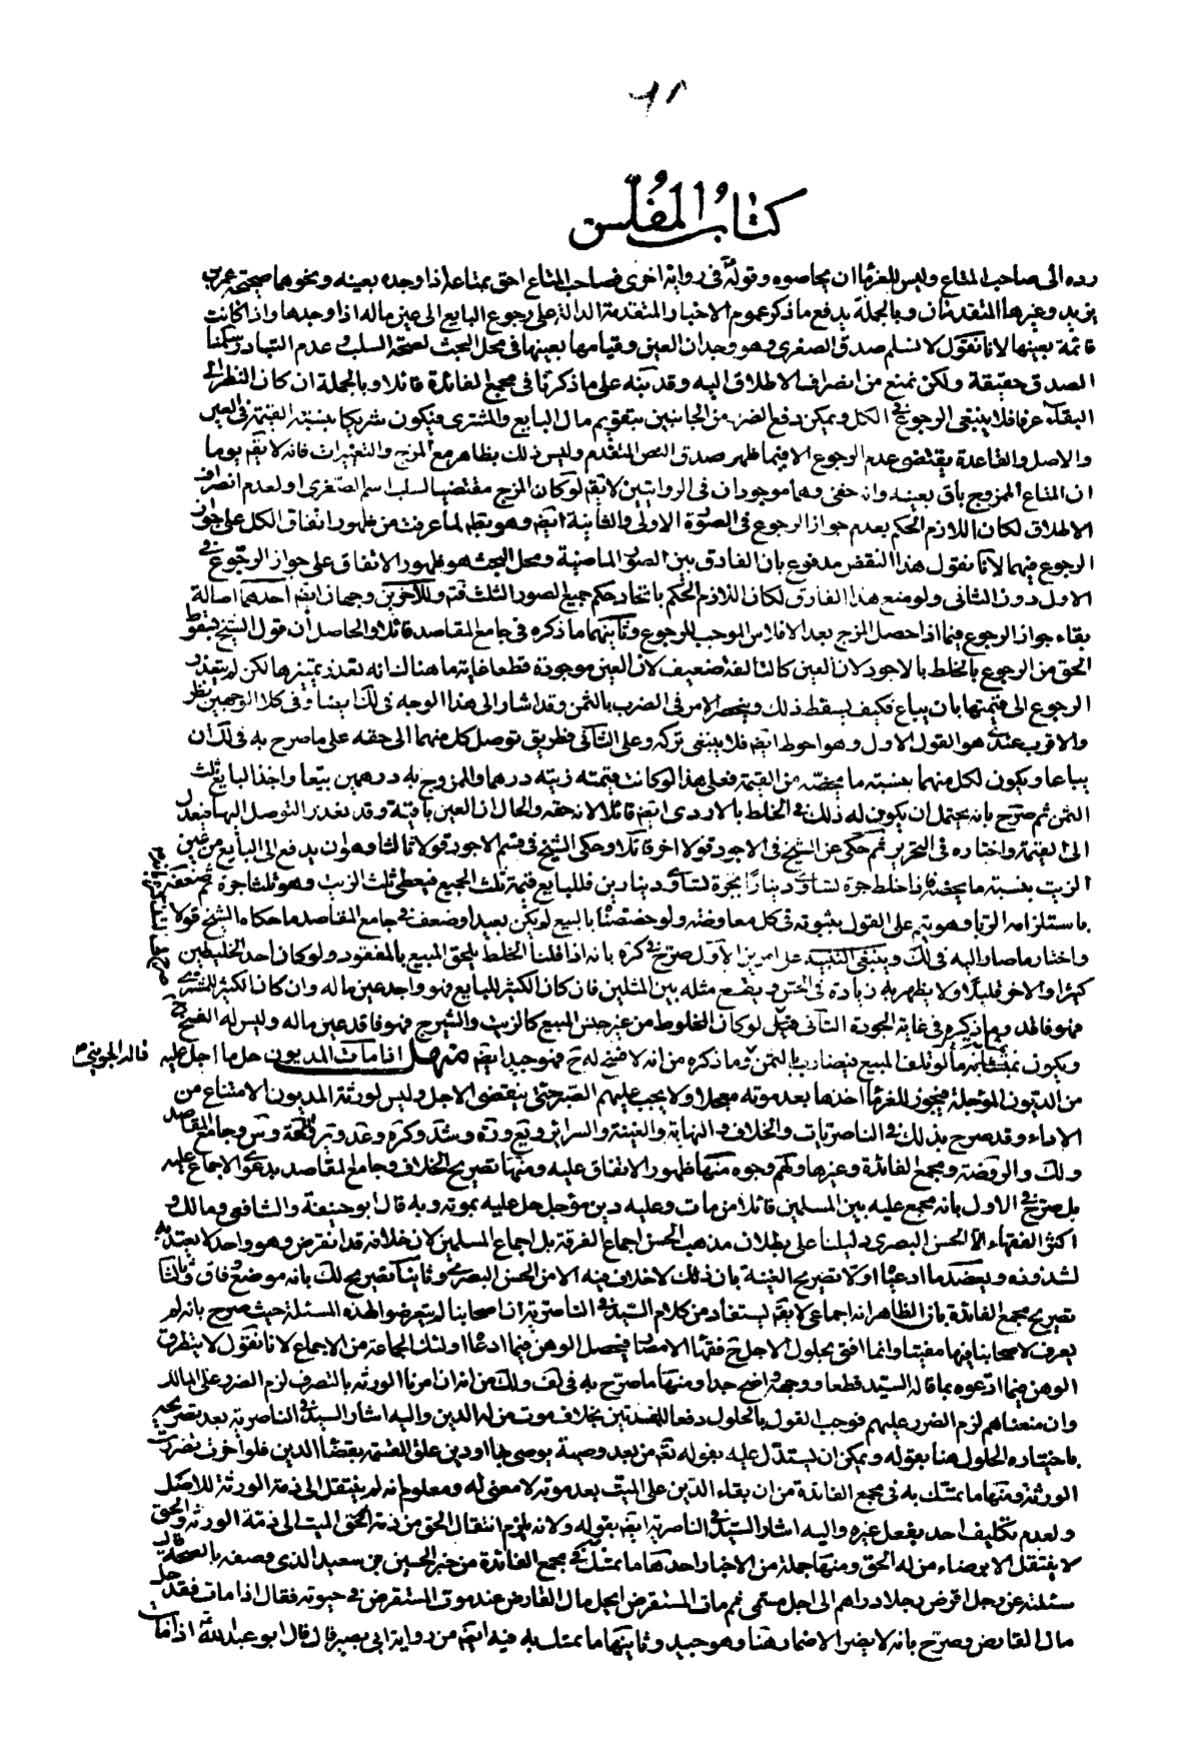 كتاب المفلس
رده الى صاحب المتاع وليس للغرماء ان يحاصوه وقوله في رواية اخرى فصاحب المتاع احق بمتاعه اذا وجده بعينه ونحوهما صحيحة عمر بن
يزيد وغيرها المتقدمتان وبالجملة يدفع ما ذكر عموم الاخبار المتقدمة الدالة على رجوع البايع الى عين ماله اذا وجدها واذا كانت
قائمة بعينها لانا نقول لا نسلم صدق الصغرى وهو وجدان العين وقيامها بعينها في محل البحث لصحة السلب وعدم التبادر سلمنا
الصدق حقيقة ولكن نمنع من انصراف الاطلاق اليه وقد نبه على ما ذكرنا في مجمع الفائدة قائلا وبالجملة ان كان النظر الى
البقاء عرفا فلا ينبغي الرجوع في الكل ويمكن دفع الضرر من الجانبين بتقويم مال البايع والمشترى فيكون شريكا بنسبة القيمة في العين
والاصل والقاعدة يقتضى عدم الرجوع الا فيما ظهر صدق النص المتقدم وليس ذلك بظاهر مع المزج والتغييرات فانه لا يقم يوما
ان المتاع الممزوج باق بعينه وانه خفى وهما موجودان في الروايتين لا يقم لو كان المزج مقتضيا لسلب اسم الصغرى او لعدم انصراف
الاطلاق لكان اللازم الحكم بعدم جواز الرجوع في الصورة الاولى والثانية ايضم وهو بط لما عرفت من ظهور اتفاق الكل على جواز
الرجوع فيهما لانا نقول هذا النقض مدفوع بان الفارق بين الصور الماضية ومحل البحث هو ظهور الاتفاق على جواز الرجوع في
الاول دون الثانى ولو منع هذا الفارق لكان اللازم الحكم باتحاد حكم جميع الصور الثلث فتم وللآخرين وجهان ايضم احدهما اصالة
بقاء جواز الرجوع فيما اذا حصل المزج بعد الافلاس الموجب للرجوع وثانيهما ما ذكره في جامع المقاصد قائلا والحاصل ان قول الشيخ بسقوط
الحق من الرجوع بالخلط بالاجود لان العين كالتالفة ضعيف لان العين موجودة قطعا غاية ما هناك انه تعذر تميزها لكن لم يتعذر
الرجوع الى قيمتها بان يباع فكيف يسقط ذلك وينحصر الامر في الضرب بالثمن وقد اشار الى هذا الوجه في لك ايضا وفى كلا الوجهين نظر
والاقرب عندى هو القول الاول وهو احوط ايضم فلا ينبغى تركه وعلى الثانى فطريق توصل كل منهما الى حقه على ما صرح به في لك ان
يباعا ويكون لكل منهما بنسبة ما يخصه من القيمة فعلى هذا لو كانت قيمته زيته درهما والممزوج به درهمين بيعا واخذ البايع ثلث
الثمن ثم صرح بانه يحتمل ان يكون له ذلك في الخلط بالاردى ايضم قائلا لانه حقه والحال ان العين باقية وقد تعذر التوصل اليها فيعدل
الى القيمة واختاره في التحرير ثم حكى عن الشيخ في الاجود قولا اخر قائلا وحكى الشيخ في قسم الاجود قولا ثالثا وهو ان يدفع الى البايع من عين
الزيت بنسبة ما يخصه فاذا خلط جرة تساوى دينارا بجرة تساوى دينارين فللبايع قيمة ثلث الجميع فيعطى ثلث الزيت وهو ثلثا جرة ثم ضعفه
باستلزامه الربا وهو يتم على القول بثبوته في كل معاوضة ولو خصصنا بالبيع لم يكن بعيدا وضعف في جامع المقاصد ما حكاه الشيخ قولا
واختار ما صار اليه في لك وينبغى التنبيه على امرين الاول صرح في كره بانه اذا قلنا الخلط يلحق المبيع بالمفقود ولو كان احد الخليطين
كثيرا والاخر قليلا ولا يظهر به زيادة في الحس ويقع مثله بين المثلين فان كان الكثير للبايع فهو واجد عين ماله وان كان الكثير للمشترى
فهو فاقد وما ذكره في غاية الجودة الثانى قيل لو كان المخلوط من غير جنس المبيع كالزيت والشيرج فهو فاقد عين ماله وليس له الفسخ
ويكون بمثابة ما لو تلف المبيع فيضارب بالثمن وما ذكره من انه لا فسخ له ح فهو جيد ايضم منهل اذا مات المديون حل ما اجل عليه
قاله الجوينى
من الديون المؤجلة فيجوز للغرماء اخذها بعد موته معجلا ولا يجب عليهم الصبر حتى ينقضى الاجل وليس لورثة المديون الامتناع من
الاداء وقد صرح بذلك في الناصريات والخلاف والنهاية والغنية والسرائر ويع وفع وشد وكره وعد وتبر واللمعة وس وجامع المقاصد
ولك والروضة ومجمع الفائدة وغيرها ولهم وجوه منها ظهور الاتفاق عليه ومنها تصريح الخلاف وجامع المقاصد بدعوى الاجماع عليه
بل صرح في الاول بانه مجمع عليه بين المسلمين قائلا من مات وعليه دين مؤجل حل عليه بموته وبه قال ابو حنيفة والشافعى ومالك و
اكثر الفقهاء الا الحسن البصرى دليلنا على بطلان مذهب الحسن اجماع الفرقة بل اجماع المسلمين لان خلافه قد انقرض وهو واحد لا يعتد به
لشذوذه ويعضد ما ادعياه اولا تصريح الغنية بان ذلك لا خلاف فيه الا من الحسن البصرى وثانيا تصريح لك بانه موضع وفاق وثالثا
تصريح مجمع الفائدة بان الظاهر انه اجماعى لا يقم يستفاد من كلام السيد في الناصرية ان اصحابنا لم يتعرضوا لهذه المسئلة حيث صرح بانه لم
يعرف لاصحابنا فيها مفتيا وانما افتى بحلول الاجل ح فقهاء الامصار فيحصل الوهن فيما ادعاه اولئك الجماعة من الاجماع لانا نقول لا يتطرق
الوهن فيما ادعوه بما قاله السيد قطعا ووجهه واضح جدا ومنها ما صرح به في لف ولك من انه ان امرنا الورثة بالتصرف لزم الضرر على المالك
وان منعناهم لزم الضرر عليهم فوجب القول بالحلول دفعا للمفسدتين بخلاف موت من له الدين واليه اشار السيد في الناصرية بعد تصريحه
باختياره الحلول هنا بقوله ويمكن ان يستدل عليه بقوله تعم من بعد وصية يوصى بها او دين علق القسمة بقضاء الدين فلو اخرت تضررت
الورثة ومنها ما تمسك به في مجمع الفائدة من ان بقاء الدين على الميت بعد موته لا معنى له ومعلوم انه لم ينتقل الى ذمة الورثة للاصل
ولعدم تكليف احد بفعل غيره واليه اشار السيد في الناصرية ايضم بقوله ولانه يلزم انتقال الحق من ذمة الميت الى ذمة الورثة والحق
لا ينتقل الا برضاء من له الحق ومنها جملة من الاخبار احدها ما تمسك به في مجمع الفائدة من خبر الحسين بن سعيد الذى وصفه بالصحة قال
سئلته عن رجل اقرض رجلا دراهم الى اجل مسمى ثم مات المستقرض ايحل مال القارض عند موت المستقرض في حيوته فقال اذا مات فقد حل
مال القارض وصرح بانه لا يضر الاضمار هنا وهو جيد وثانيها ما تمسك به فيه ايضم من رواية ابى بصير قال قال ابو عبد الله ع اذا مات